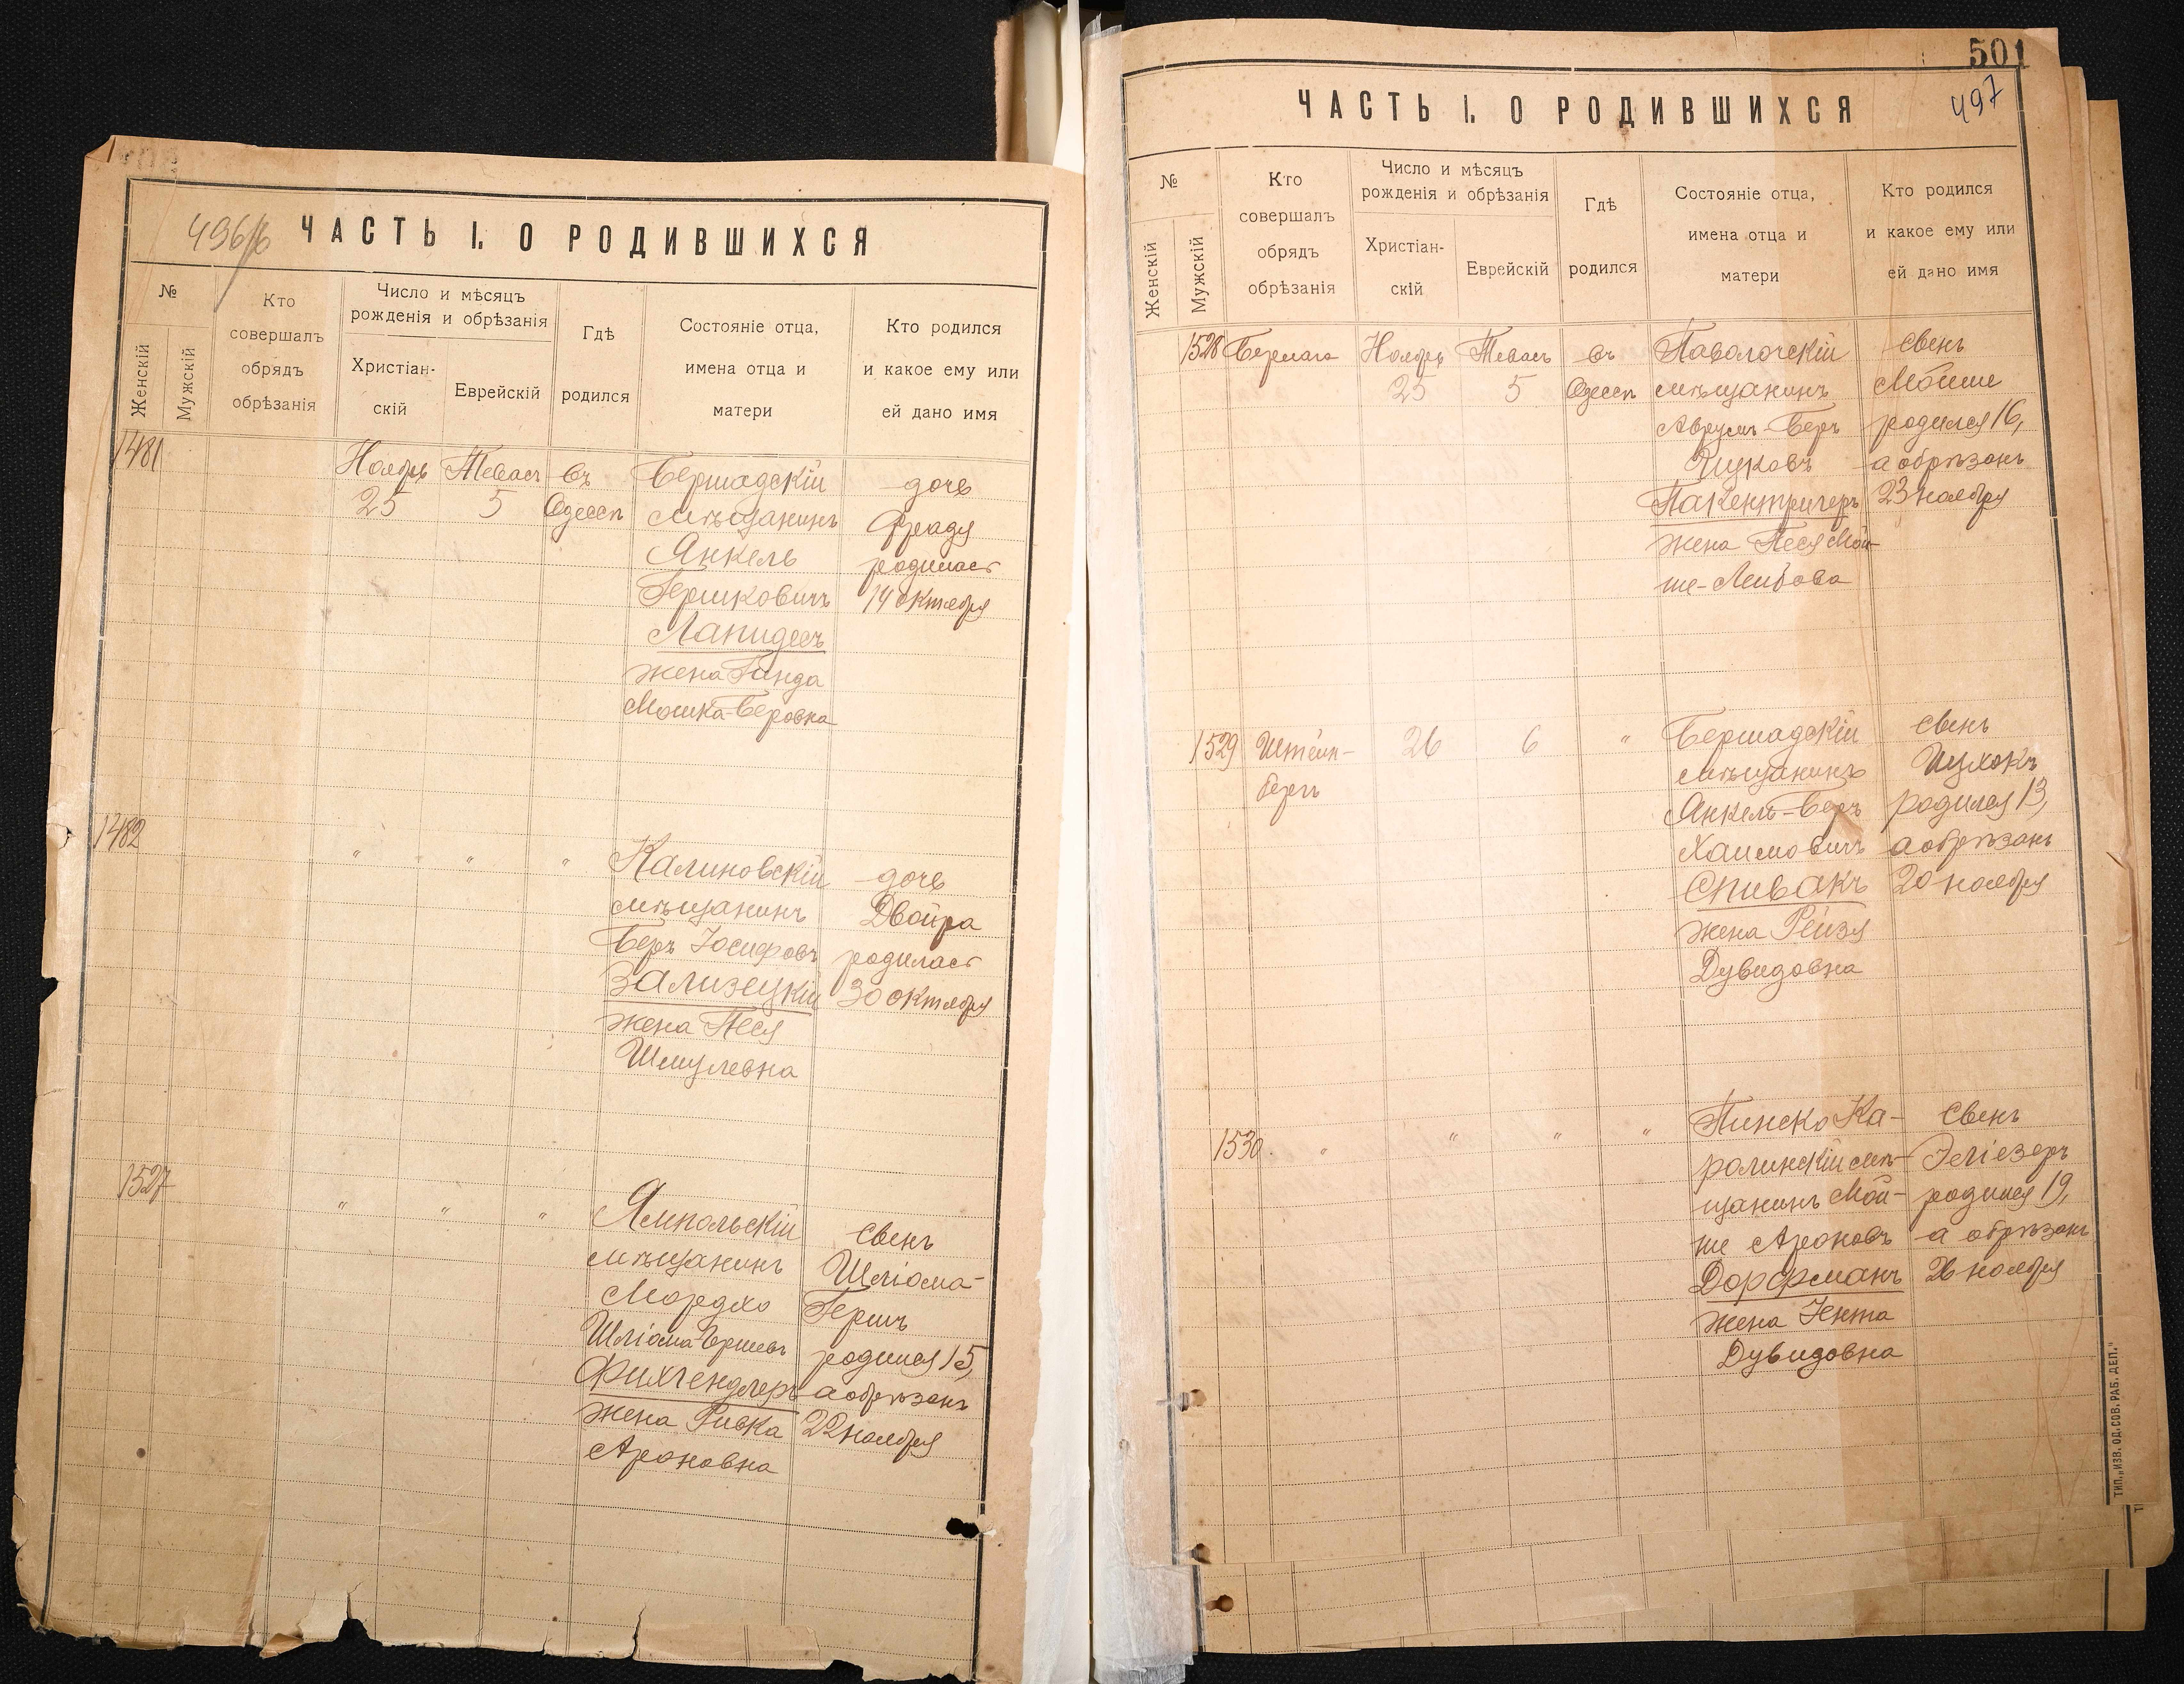 496/б
ЧАСТЬ I. О РОДИВШИХСЯ
№
Женскій
Мужскій
Кто
совершалъ
обрядъ
обрѣзанія
Число и мѣсяцъ
рожденія и обрѣзанія
Христіан-
скій
Еврейскій
Гдѣ
родился
Состояніе отца,
имена отца и
матери
Кто родился
и какое ему или
ей дано имя
1481
Ноябрь
25
Тевасъ
5
въ
Одессѣ
Бершадскій
мѣщанинъ
Янкель
Гершковичъ
Лапидесъ
жена Гинда
Мошка-Беровна
дочь
Фрадя
родилась
14 октября
1482
" " " "
Калиновскій
мѣщанинъ
Беръ Іосифовъ
Зализецкій
жена Песя
Шмулевна
дочь
Двойра
родилась
30 октября
1527
" " "
Ямпольскій
мѣщанинъ
Мордхо
Шліома-Гершевъ
Фихгендлеръ
жена Ривка
Ароновна
сынъ
Шліома-
Гершъ
родился 15,
а обрѣзанъ
22 ноября
501
497
ЧАСТЬ I. О РОДИВШИХСЯ
№
Женскій
Мужскій
Кто
совершалъ
обрядъ
обрѣзанія
Число и мѣсяцъ
рожденія и обрѣзанія
Христіан-
скій
Еврейскій
Гдѣ
родился
Состояніе отца,
имена отца и
матери
Кто родился
и какое ему или
ей дано имя
1528
Берлага
Ноябрь
25
Тевасъ
5
въ
Одессѣ
Паволочскій
мѣщанинъ
Аврумъ-Беръ
Ицковъ
Пакентрегеръ
жена Песя Мой-
ше-Лейбова
сынъ
Мойше
родился 16,
а обрѣзанъ
23 ноября
1529
Штейн-
бергъ
26
6
"
Бершадскій
мѣщанинъ
Янкель-Беръ
Хаимовичъ
Спивакъ
жена Рейзя
Дувидовна
сынъ
Ицхокъ
родился 13,
а обрѣзанъ
20 ноября
1530
" " " "
Пинско Ка-
ролинскій мѣ-
щанинъ Мой-
ше Ароновъ
Дорфманъ
жена Іента
Дувидовна
сынъ
Эліезеръ
родился 19,
а обрѣзанъ
26 ноября
ТИП. „ИЗВ. ОД. СОВ. РАБ. ДЕП."